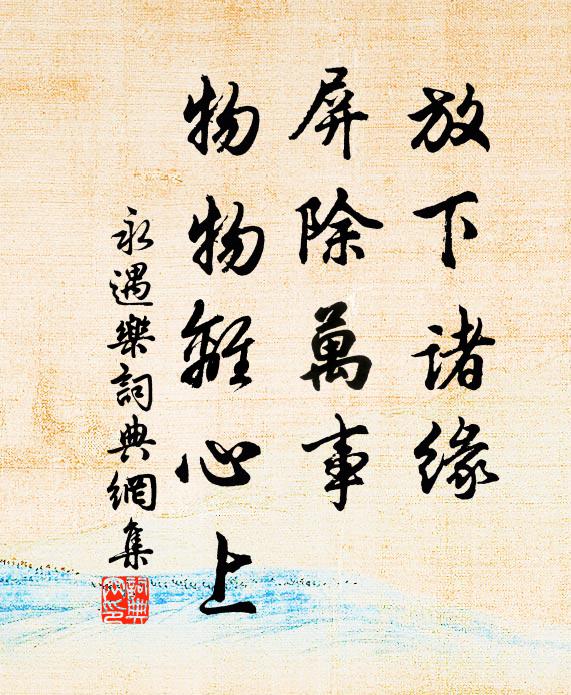 放下諸緣
屏除萬事
物物離心上
永遇樂詞典網集